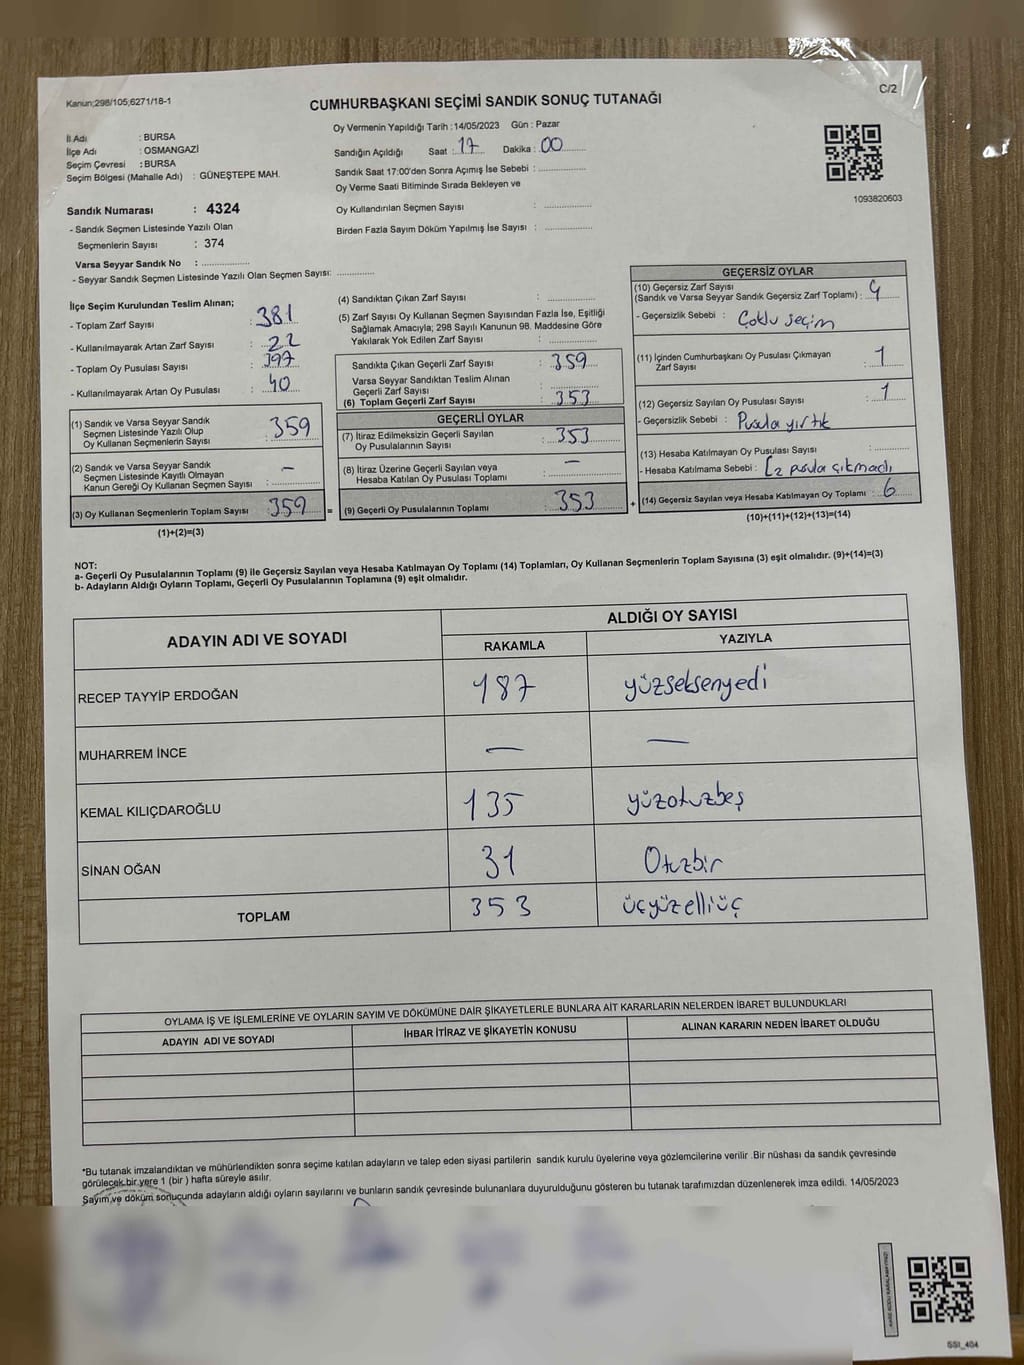 Kanun;298/105;6271/18-1
CUMHURBAŞKANI SEÇİMİ SANDIK SONUÇ TUTANAĞI
C/2
İl Adı : BURSA
İlçe Adı : OSMANGAZİ
Seçim Çevresi : BURSA
Seçim Bölgesi (Mahalle Adı) : GÜNEŞTEPE MAH.
Sandık Numarası : 4324
- Sandık Seçmen Listesinde Yazılı Olan
Seçmenlerin Sayısı : 374
Varsa Seyyar Sandık No : ....................
- Seyyar Sandık Seçmen Listesinde Yazılı Olan Seçmen Sayısı: ...............
Oy Vermenin Yapıldığı Tarih : 14/05/2023 Gün : Pazar
Sandığın Açıldığı Saat : 17 Dakika : 00
Sandık Saat 17:00'den Sonra Açımış İse Sebebi : ....................
Oy Verme Saati Bitiminde Sırada Bekleyen ve
Oy Kullandırılan Seçmen Sayısı : ....................
Birden Fazla Sayım Döküm Yapılmış İse Sayısı : ....................
1093820603
İlçe Seçim Kurulundan Teslim Alınan;
- Toplam Zarf Sayısı : 381
- Kullanılmayarak Artan Zarf Sayısı : 22
- Toplam Oy Pusulası Sayısı : 397
- Kullanılmayarak Artan Oy Pusulası : 40
(1) Sandık ve Varsa Seyyar Sandık
Seçmen Listesinde Yazılı Olup
Oy Kullanan Seçmenlerin Sayısı : 359
(2) Sandık ve Varsa Seyyar Sandık
Seçmen Listesinde Kayıtlı Olmayan
Kanun Gereği Oy Kullanan Seçmen Sayısı : –
(3) Oy Kullanan Seçmenlerin Toplam Sayısı : 359 =
(1)+(2)=(3)
(4) Sandıktan Çıkan Zarf Sayısı : ....................
(5) Zarf Sayısı Oy Kullanan Seçmen Sayısından Fazla İse, Eşitliği
Sağlamak Amacıyla; 298 Sayılı Kanunun 98. Maddesine Göre
Yakılarak Yok Edilen Zarf Sayısı : ....................
Sandıkta Çıkan Geçerli Zarf Sayısı : 359
Varsa Seyyar Sandıktan Teslim Alınan
Geçerli Zarf Sayısı : ....................
(6) Toplam Geçerli Zarf Sayısı : 353
GEÇERLİ OYLAR
(7) İtiraz Edilmeksizin Geçerli Sayılan
Oy Pusulalarının Sayısı : 353
(8) İtiraz Üzerine Geçerli Sayılan veya
Hesaba Katılan Oy Pusulası Toplamı : –
(9) Geçerli Oy Pusulalarının Toplamı : 353 +
GEÇERSİZ OYLAR
(10) Geçersiz Zarf Sayısı
(Sandık ve Varsa Seyyar Sandık Geçersiz Zarf Toplamı) : 4
- Geçersizlik Sebebi : Çoklu seçim
(11) İçinden Cumhurbaşkanı Oy Pusulası Çıkmayan
Zarf Sayısı : 1
(12) Geçersiz Sayılan Oy Pusulası Sayısı : 1
- Geçersizlik Sebebi : Pusula yırtık
(13) Hesaba Katılmayan Oy Pusulası Sayısı : ....................
- Hesaba Katılmama Sebebi : 2 pusula çıkmadı
(14) Geçersiz Sayılan veya Hesaba Katılmayan Oy Toplamı : 6
(10)+(11)+(12)+(13)=(14)
NOT:
a- Geçerli Oy Pusulalarının Toplamı (9) ile Geçersiz Sayılan veya Hesaba Katılmayan Oy Toplamı (14) Toplamları, Oy Kullanan Seçmenlerin Toplam Sayısına (3) eşit olmalıdır. (9)+(14)=(3)
b- Adayların Aldığı Oyların Toplamı, Geçerli Oy Pusulalarının Toplamına (9) eşit olmalıdır.
ADAYIN ADI VE SOYADI ALDIĞI OY SAYISI
RAKAMLA YAZIYLA
RECEP TAYYİP ERDOĞAN 187 yüzseksenyedi
MUHARREM İNCE — —
KEMAL KILIÇDAROĞLU 135 yüzotuzbeş
SİNAN OĞAN 31 Otuzbir
TOPLAM 353 üçyüzelliüç
OYLAMA İŞ VE İŞLEMLERİNE VE OYLARIN SAYIM VE DÖKÜMÜNE DAİR ŞİKAYETLERLE BUNLARA AİT KARARLARIN NELERDEN İBARET BULUNDUKLARI
ADAYIN ADI VE SOYADI İHBAR İTİRAZ VE ŞİKAYETİN KONUSU ALINAN KARARIN NEDEN İBARET OLDUĞU
*Bu tutanak imzalandıktan ve mühürlendikten sonra seçime katılan adayların ve talep eden siyasi partilerin sandık kurulu üyelerine veya gözlemcilerine verilir .Bir nüshası da sandık çevresinde
görülecek bir yere 1 (bir ) hafta süreyle asılır.
Sayım ve döküm sonucunda adayların aldığı oyların sayılarını ve bunların sandık çevresinde bulunanlara duyurulduğunu gösteren bu tutanak tarafımızdan düzenlenerek imza edildi. 14/05/2023
SSI_404